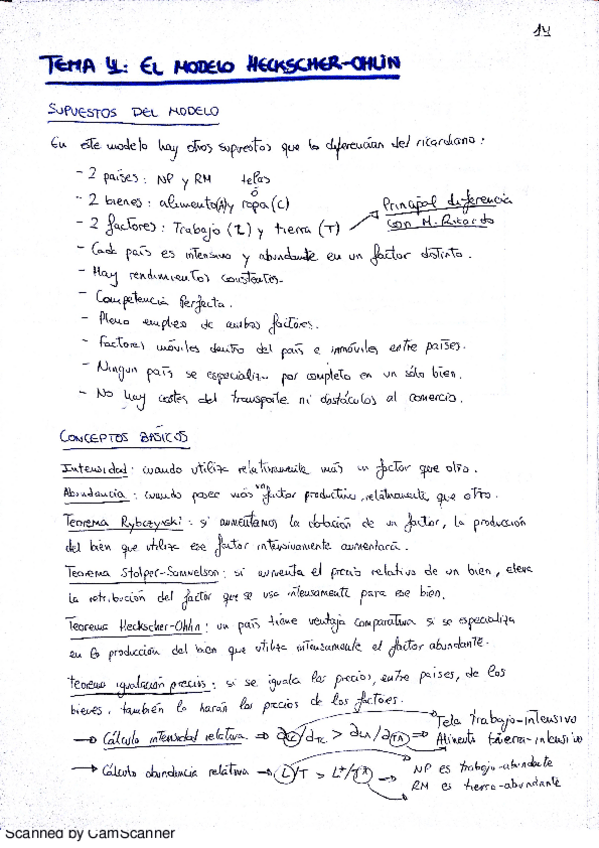 14
TEMA 4: EL MODELO HECKSCHER-OHLIN
SUPUESTOS DEL MODELO
En este modelo hay otros supuestos que lo diferencian del ricardiano:
- 2 países: NP y RM telas
ó
- 2 bienes: alimento(A) y ropa (C)
- 2 factores: Trabajo (L) y tierra (T) → Principal diferencia
con M. Ricardo
- Cada país es intensivo y abundante en un factor distinto.
- Hay rendimientos constantes.
- Competencia Perfecta.
- Pleno empleo de ambos factores.
- Factores móviles dentro del país e inmóviles entre países.
- Ningun país se especializa por completo en un sólo bien.
- No hay costes del transporte ni obstáculos al comercio.
CONCEPTOS BÁSICOS
Intensidad: cuando utiliza relativamente más un factor que otro.
Abundancia: cuando posee más un factor productivo, relativamente, que otro.
Teorema Rybczynski: si aumentamos la dotación de un factor, la producción
del bien que utiliza ese factor intensivamente aumentará.
Teorema Stolper-Samuelson: si aumenta el precio relativo de un bien, eleva
la retribución del factor que se usa intensamente para ese bien.
Teorema Heckscher-Ohlin: un país tiene ventaja comparativa si se especializa
en la producción del bien que utiliza intensamente el factor abundante.
Teorema igualación precios: si se iguala los precios, entre países, de los
bienes, también lo harán los precios de los factores.
→ Cálculo intensidad relativa → aLC/aTC > aLA/aTA ⇒ Tela trabajo-intensivo
Alimento tierra-intensivo
→ Cálculo abundancia relativa → L/T > L*/T* → NP es trabajo-abundante
RM es tierra-abundante
Scanned by CamScanner